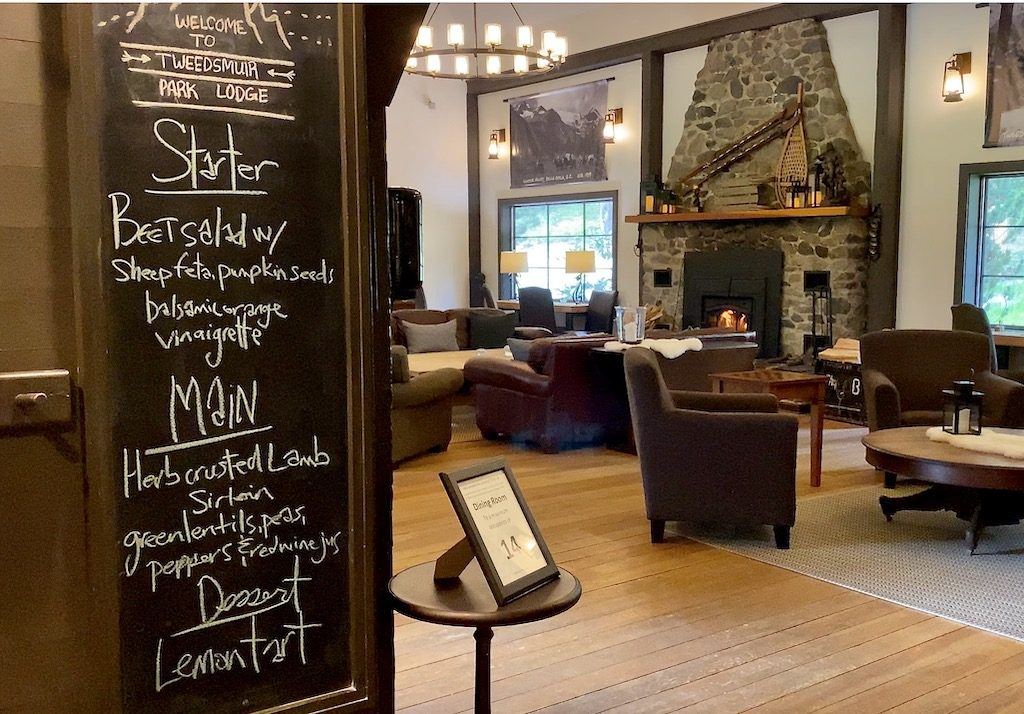 WELCOME
TO
TWEEDSMUIR
PARK LODGE
Starter
BEET salad w/
Sheep feta, pumpkin seeds
balsamic orange
vinaigrette
MAIN
Herb crusted Lamb
Sirloin
green lentils, peas,
peppers & red wine jus
Dessert
Lemon tart
Dining Room
14
B